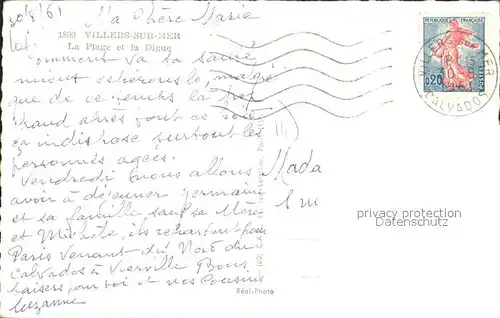 30/8/61
Ma Chère Marie
1800 VILLERS-SUR-MER
La Plage et la Digue
Comment va la santé
mieux espérons le, malgré
que de ce temps là trop
chaud après tout ce
ça indispose surtout les
personnes agées.
Vendredi nous allons
avoir à déjeuner Germain
et sa famille, sauf sa Mère
et Michèle, ils repartent pour
Paris venant du Nord du
Calvados à Vierville Bons
baisers pour toi et nos Cousins
Suzanne
Mada
RÉPUBLIQUE FRANÇAISE
0,20
POSTES
VILLERS-SUR-MER
CALVADOS
privacy protection
Datenschutz
Réal-Photo